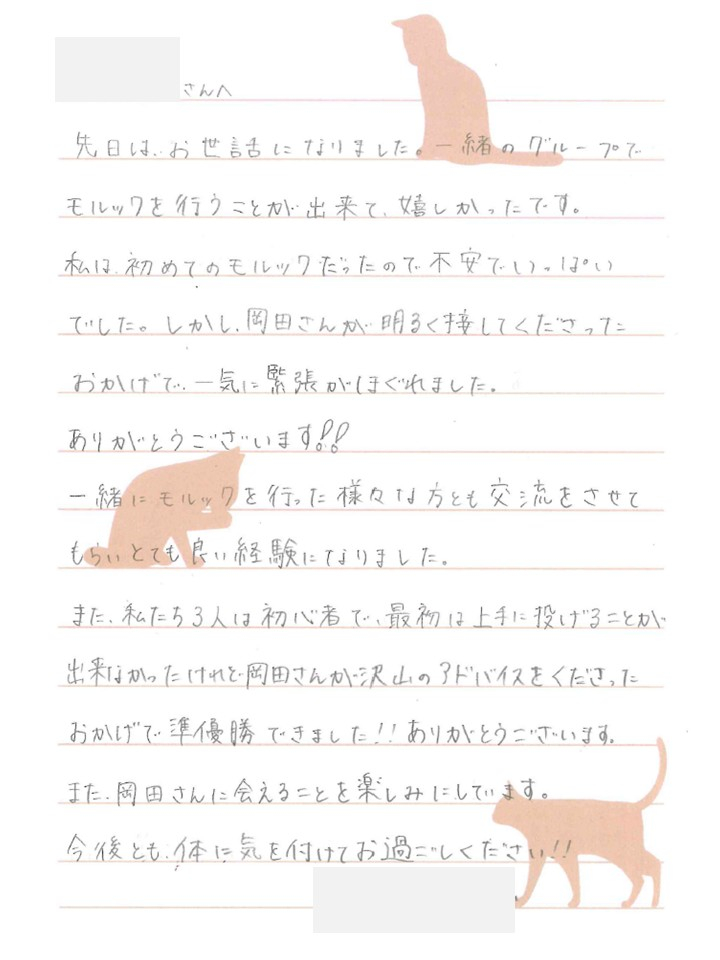 さんへ
先日は、お世話になりました。一緒のグループで
モルックを行うことが出来て、嬉しかったです。
私は、初めてのモルックだったので不安でいっぱい
でした。しかし、岡田さんが明るく接してくださった
おかげで、一気に緊張がほぐれました。
ありがとうございます!!
一緒にモルックを行った様々な方とも交流をさせて
もらいとても良い経験になりました。
また、私たち3人は初心者で、最初は上手に投げることが
出来なかったけれど岡田さんが沢山のアドバイスをくださった
おかげで準優勝できました!!ありがとうございます。
また、岡田さんに会えることを楽しみにしています。
今後とも、体に気を付けてお過ごしください!!